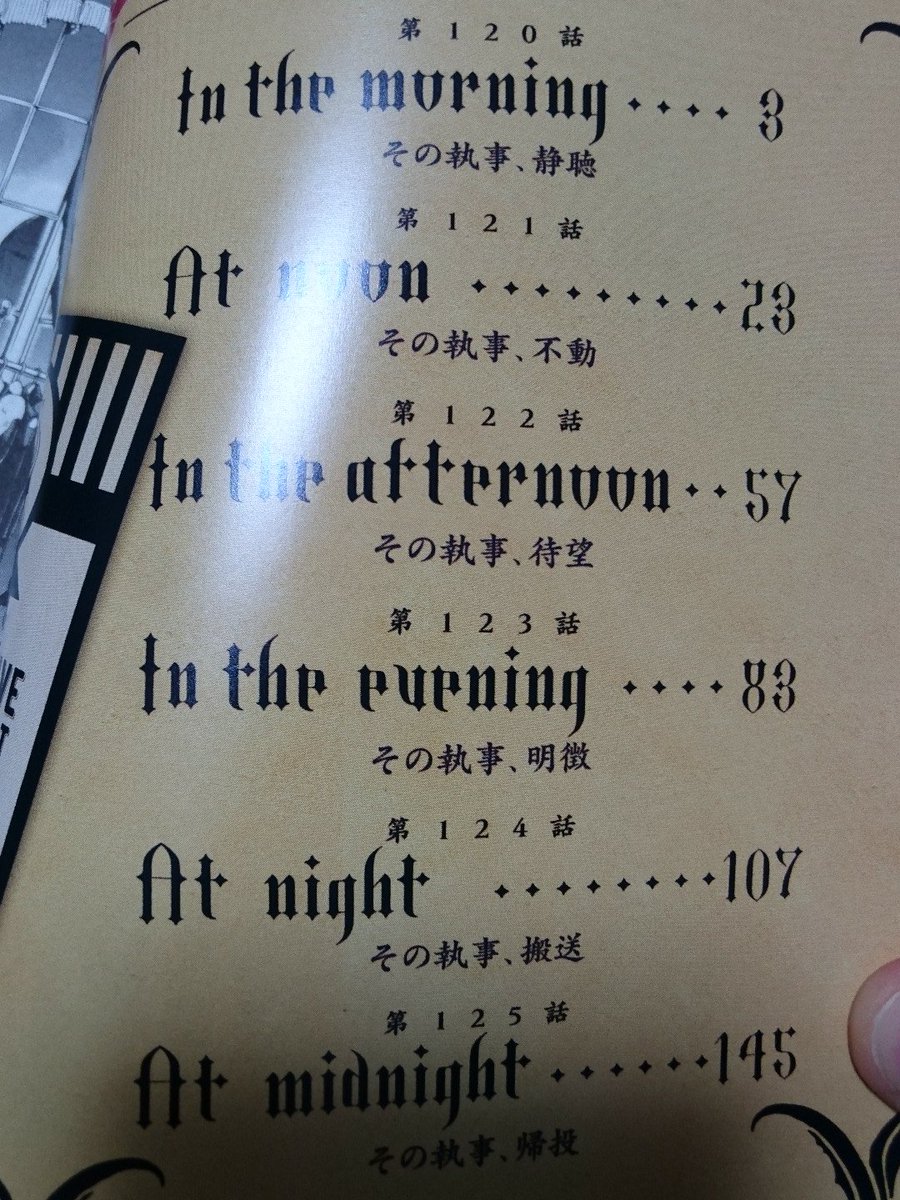 第120話
In the morning ････ 3
その執事、静聴
第121話
At noon ･････････ 23
その執事、不動
第122話
In the afternoon ･･ 57
その執事、待望
第123話
In the evening ････ 83
その執事、明徴
第124話
At night ････････ 107
その執事、搬送
第125話
At midnight ･･････ 145
その執事、帰投